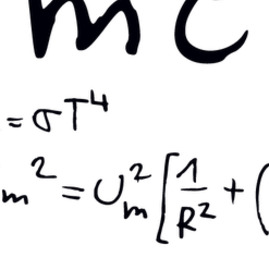 m c
= σT⁴
m² = U²ₘ [1/R² + (